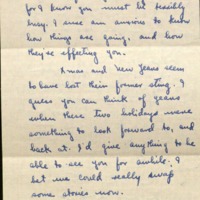 for I know you must be terribly
busy. I sure am anxious to know
how things are going, and how
they're effecting you.
Xmas and New Years seem
to have lost their former sting. I
guess you can think of years
when these two holidays were
something to look forward to, and
back at. I'd give anything to be
able to see you for awhile. I
bet we could really swap
some stories now.